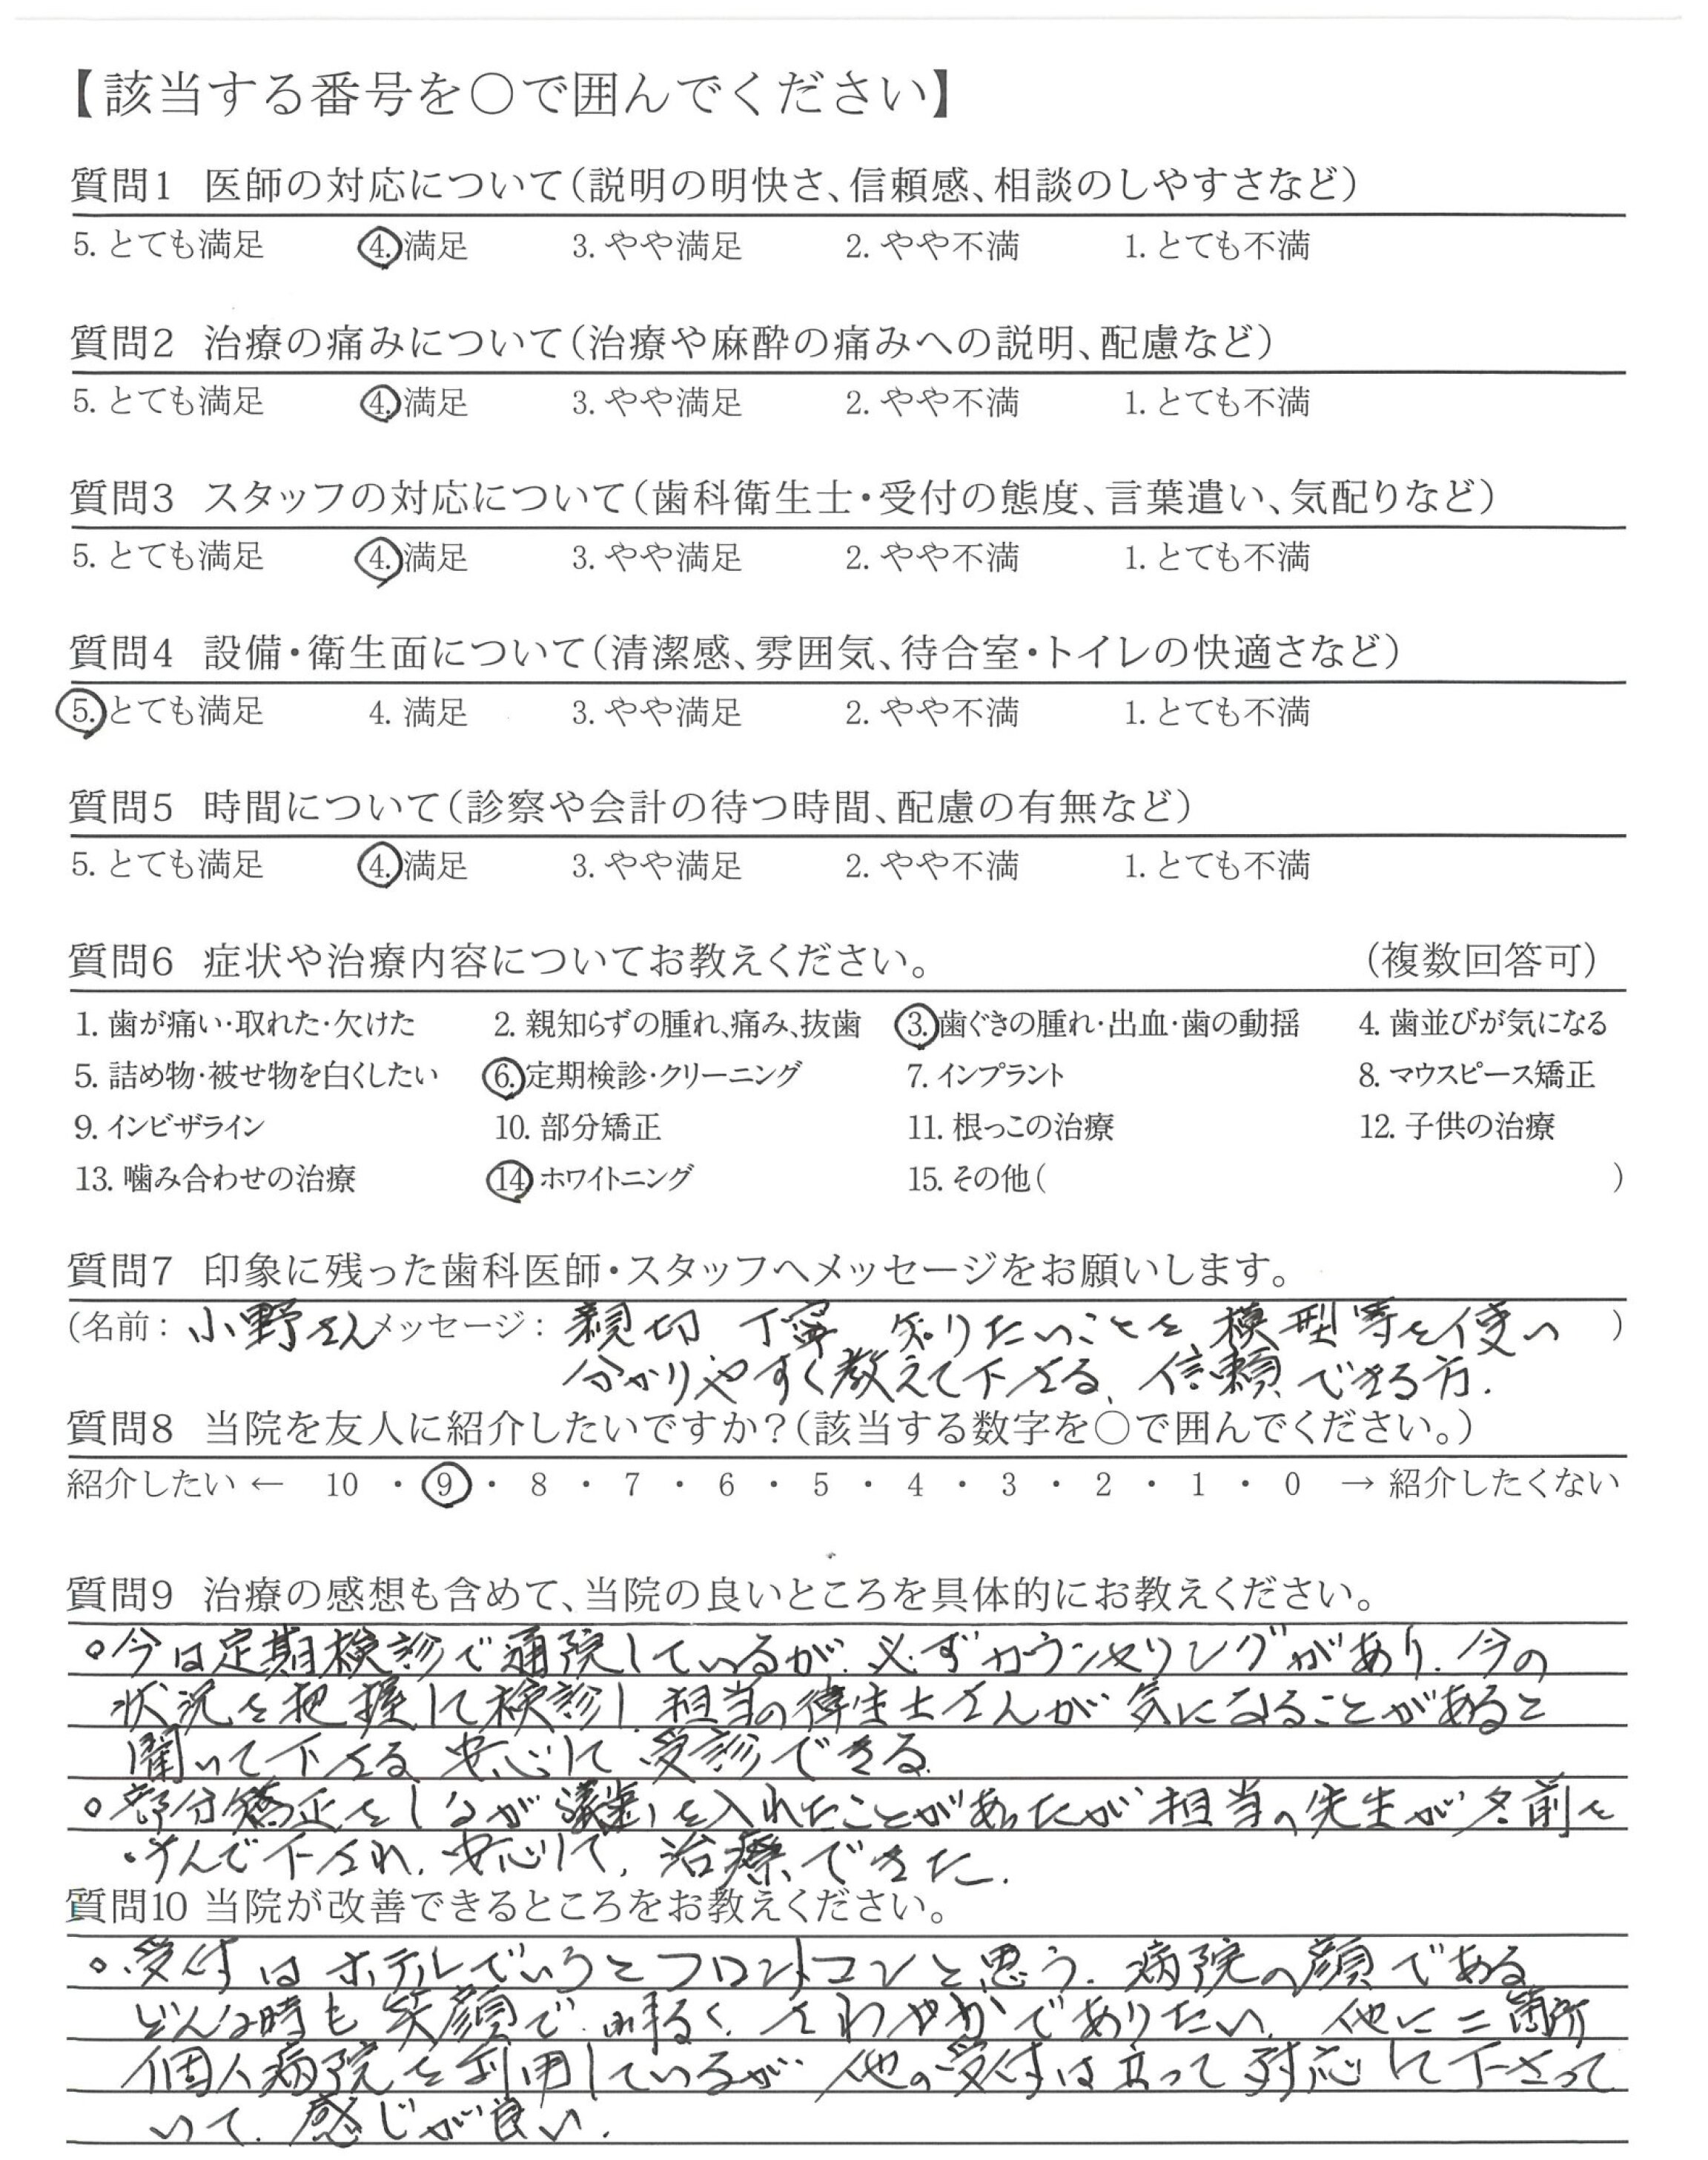 【該当する番号を〇で囲んでください】
質問1 医師の対応について(説明の明快さ、信頼感、相談のしやすさなど)
5. とても満足 4. 満足 3. やや満足 2. やや不満 1. とても不満
質問2 治療の痛みについて(治療や麻酔の痛みへの説明、配慮など)
5. とても満足 4. 満足 3. やや満足 2. やや不満 1. とても不満
質問3 スタッフの対応について(歯科衛生士・受付の態度、言葉遣い、気配りなど)
5. とても満足 4. 満足 3. やや満足 2. やや不満 1. とても不満
質問4 設備・衛生面について(清潔感、雰囲気、待合室・トイレの快適さなど)
5. とても満足 4. 満足 3. やや満足 2. やや不満 1. とても不満
質問5 時間について(診察や会計の待つ時間、配慮の有無など)
5. とても満足 4. 満足 3. やや満足 2. やや不満 1. とても不満
質問6 症状や治療内容についてお教えください。 (複数回答可)
1. 歯が痛い・取れた・欠けた 2. 親知らずの腫れ、痛み、抜歯 3. 歯ぐきの腫れ・出血・歯の動揺 4. 歯並びが気になる
5. 詰め物・被せ物を白くしたい 6. 定期検診・クリーニング 7. インプラント 8. マウスピース矯正
9. インビザライン 10. 部分矯正 11. 根っこの治療 12. 子供の治療
13. 噛み合わせの治療 14 ホワイトニング 15. その他( )
質問7 印象に残った歯科医師・スタッフへメッセージをお願いします。
(名前: 小野さん メッセージ: 親切 丁寧 知りたいことを、模型等を使い )
分かりやすく教えて下さる、信頼できる方.
質問8 当院を友人に紹介したいですか?(該当する数字を〇で囲んでください。)
紹介したい ← 10 ・ 9 ・ 8 ・ 7 ・ 6 ・ 5 ・ 4 ・ 3 ・ 2 ・ 1 ・ 0 → 紹介したくない
質問9 治療の感想も含めて、当院の良いところを具体的にお教えください。
○今は定期検診で通院しているが、必ずカウンセリングがあり、今の
状況を把握して検診し、担当の衛生士さんが気になることがあると
聞いて下さる 安心して受診できる
○部分矯正をしながら を入れたことがあったが担当の先生が名前を
んで下され、安心して、治療できた.
質問10 当院が改善できるところをお教えください。
○受付はホテルでいうとフロントマンと思う. 病院の顔である
どんな時も笑顔で、明るく、さわやかでありたい、他に二箇所
個人病院を利用しているが、他の受付は立って対応して下さって
いて、感じが良い.